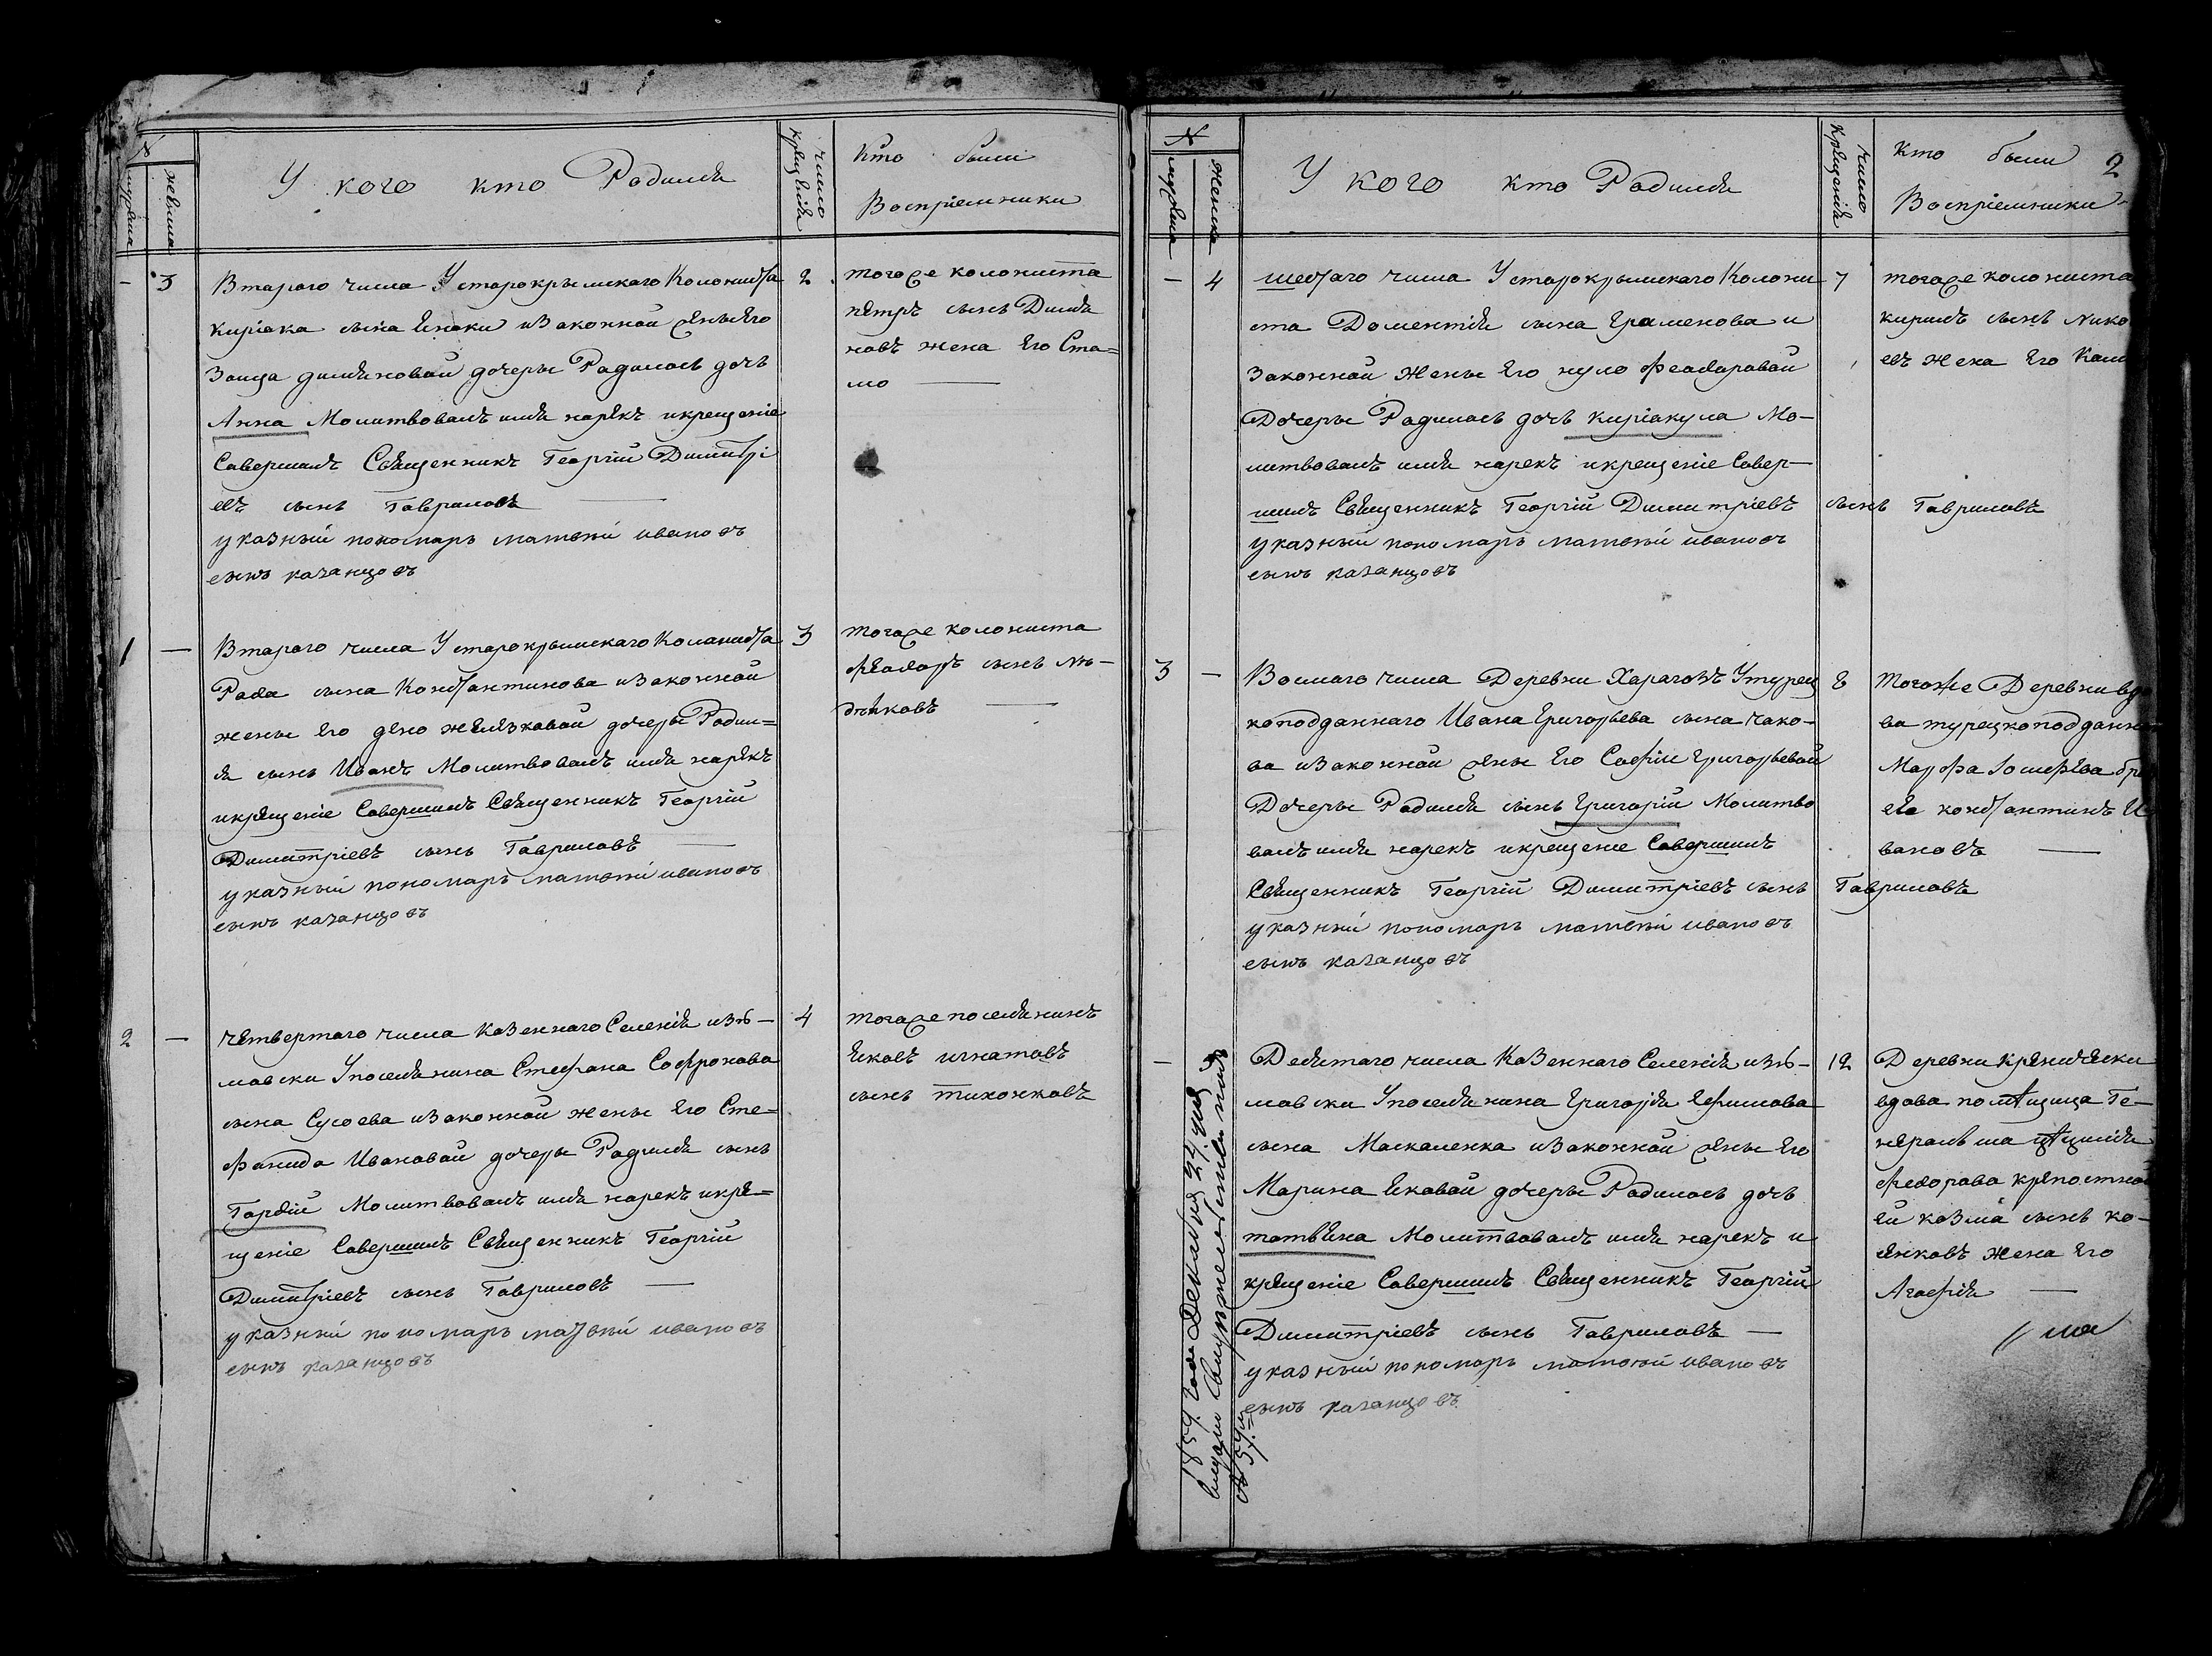 N
мужеска
женска
У кого кто Родился
число
крещенія
Кто были
Воспріемники
- 3
Втараго числа У старокрымскаго Колониста
Киріака сына Енаки изаконной жены его
Зоица димяновай дочеры Радилась дочь
Анна Молитвовалъ имя нарекъ икрещеніе
Савершилъ Священникъ Георгій Димитрі
евъ сынъ Гавриловъ
указный пономарь матвѣй ивановъ
сынъ казанцовъ
2
тогоже колониста
петръ сынъ Димя
новъ жена Его Ста=
мо
1 -
Втараго числа У старокрымскаго Коланиста
Рада сына Константинова изаконной
жены Его дено желязковай дочеры Родил=
ся сынъ Иванъ Молитвовалъ имя нарекъ
икрещеніе Савершилъ Священникъ Георгій
Димитріевъ сынъ Гавриловъ
указный пономарь матвѣй ивановъ
сынъ казанцовъ
3
тогоже колониста
Феодоръ сынъ
2 -
четвертаго числа Казеннаго Селенія изю-
мавски Упоселянина Стефана Софронова
сына Сусоева изаконной жены Его Сте=
фанида Ивановай дочеры Радился сынъ
Гордій Молитвовалъ имя нарекъ икре=
щеніе Савершилъ Священникъ Георгій
Димитріевъ сынъ Гавриловъ
указный пономарь матвѣй ивановъ
сынъ казанцовъ
4
тогоже поселянинъ
Яковъ игнатовъ
сынъ тихонковъ
N
мужеска
женска
У кого кто Родился
число
крещенія
Кто были
Воспріемники
2
- 4
шестаго числа У старокрымскаго Колони
ста Доментія сына Граменова и
Законной Жены Его нуло Феодоравай
Дочеры Радилась дочь Киріакула Мо-
литвовалъ имя нарекъ икрещеніе Савер-
шилъ Священникъ Георгій Димитріевъ сынъ Гавриловъ
указный пономарь матвѣй ивановъ
сынъ казанцовъ
7
тогоже колониста
кирилъ сынъ Нико
евъ жена Его
3 -
Восмаго числа Деревни Харагозъ Утурец
коподданнаго Ивана Григорьева сына чако-
ва изаконной жены Его Софіи Григорьевай
Дочеры Радился сынъ Григорій Молитво
валъ имя нарекъ икрещеніе Савершилъ
Священникъ Георгій Димитріевъ сынъ Гавриловъ
указный пономарь матвѣй ивановъ
сынъ казанцовъ
8
Тогоже Деревни вдо
ва турецкоподданна
Марфа Іосифева
ея константинъ И
вановъ
- 5
Девятаго числа Казеннаго Селенія изю-
мавски Упоселянина Григорія Ефимова
сына Маскаленка изаконной жены Его
Марина Яковай дочеры Радилась дочь
татьяна Молитвовалъ имя нарекъ и
крещеніе Савершилъ Священникъ Георгій
Димитріевъ сынъ Гавриловъ -
указный пономарь матвѣй ивановъ
сынъ казанцовъ
12
Деревни
вдова помѣщица Ге-
неральша
Федорова крепостной
ей козма сынъ ко-
Жена Его
Агафія
1859 года Декабря 24 дня
выдано Свидѣтельство подъ
№ 59м